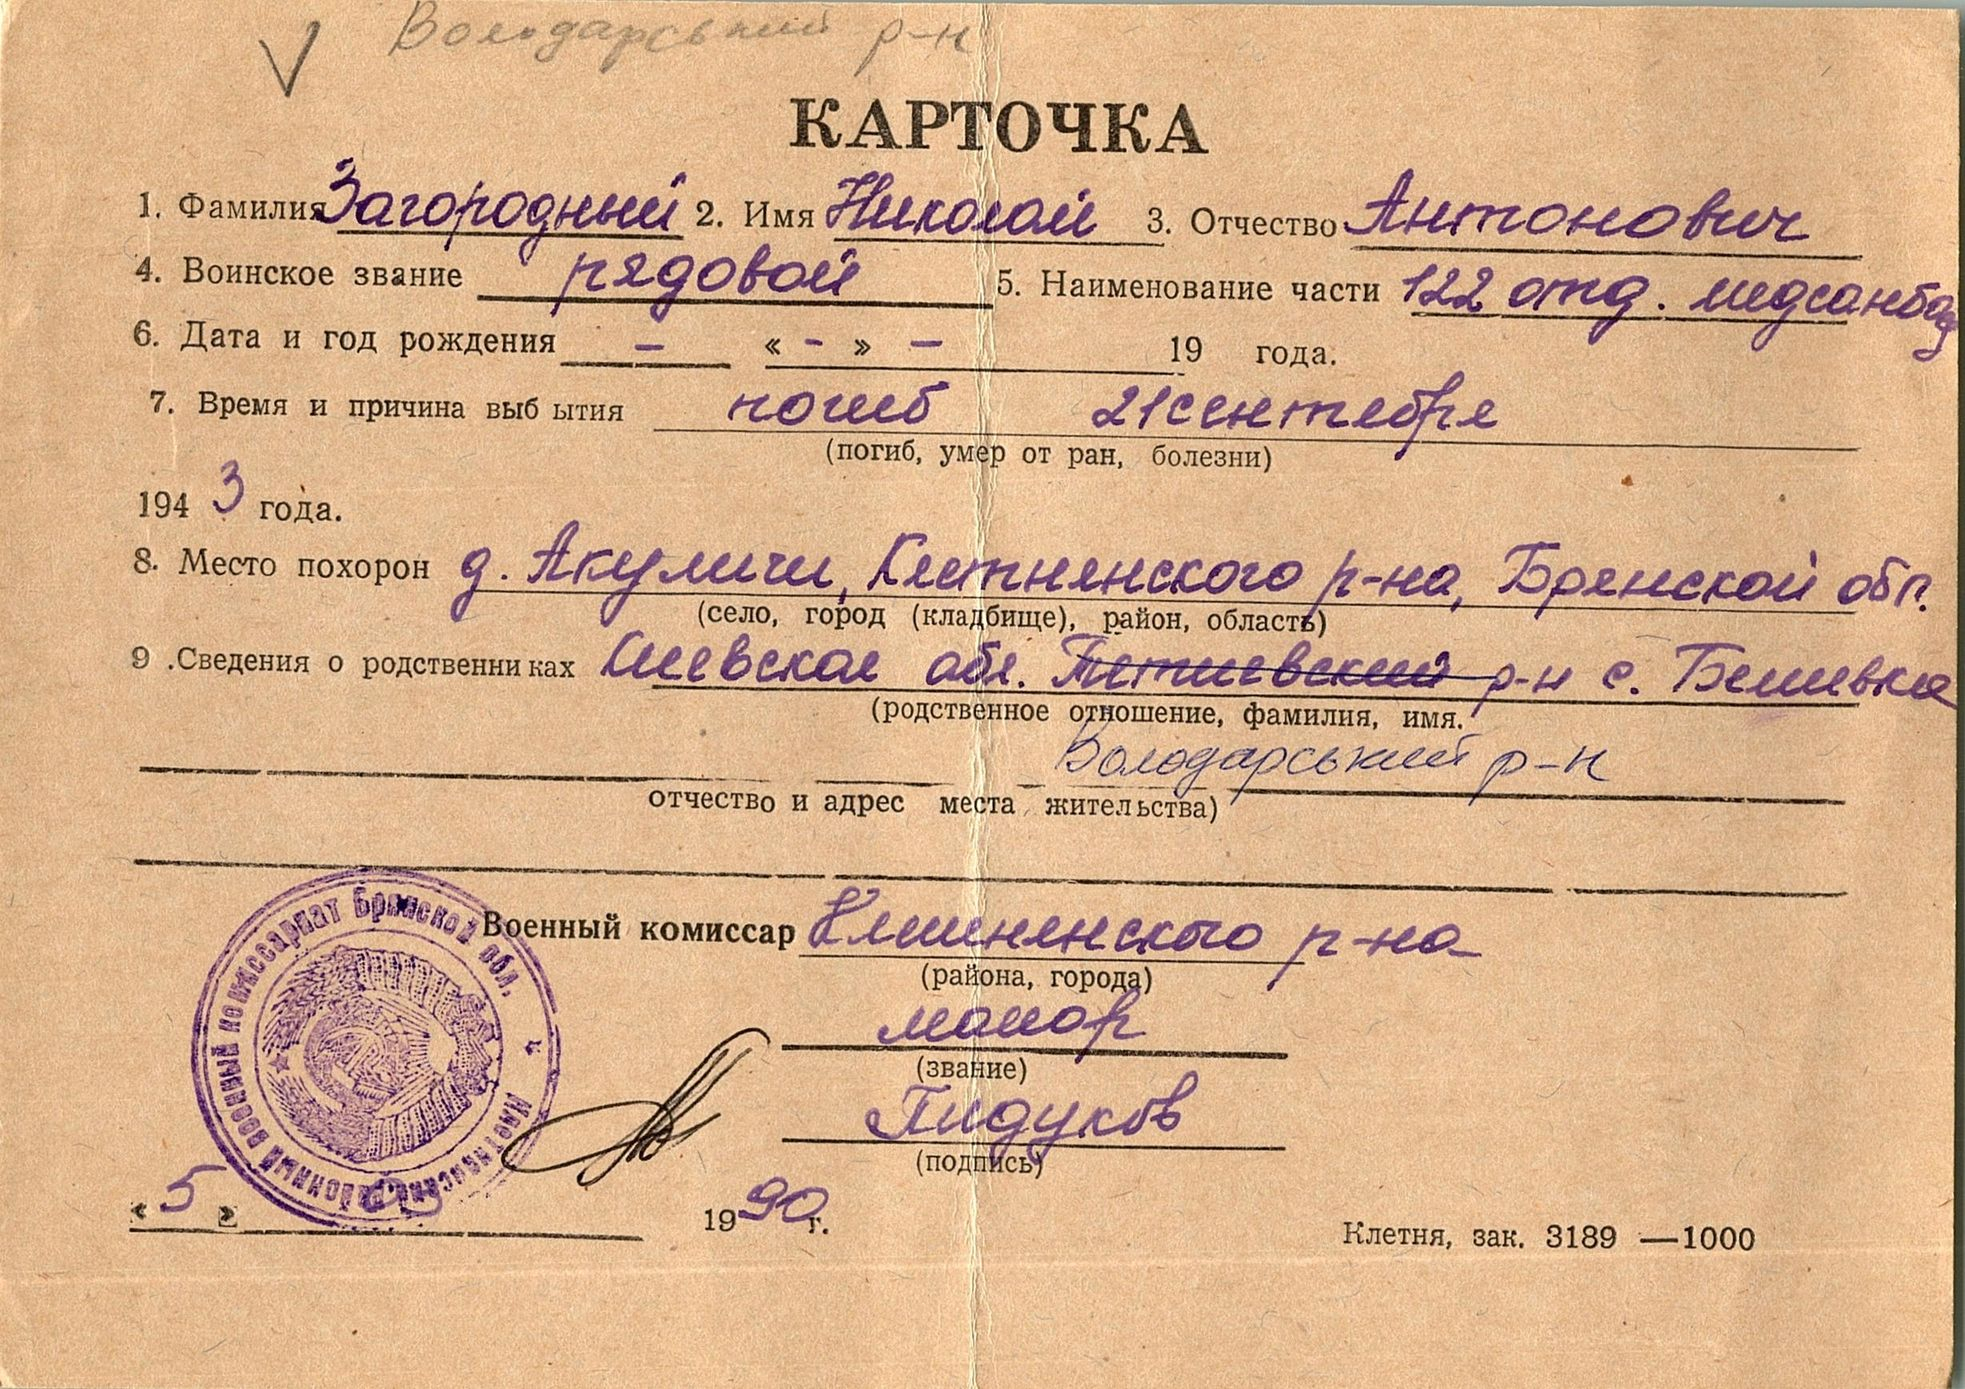 Володарський р-н
КАРТОЧКА
1. Фамилия Загородный 2. Имя Николай 3. Отчество Антонович
4. Воинское звание рядовой 5. Наименование части 122 отд. медсанбад
6. Дата и год рождения – « - » – 19 года.
7. Время и причина выб ытия погиб 21 сентября
(погиб, умер от ран, болезни)
194 3 года.
8. Место похорон д. Акуличи, Клетнянского р-на, Брянской обл.
(село, город (кладбище), район, область)
9 .Сведения о родственни ках Киевская обл. Тетиевский р-н с.
(родственное отношение, фамилия, имя.
Володарський р-н
отчество и адрес места жительства)
Военный комиссар Клетнянского р-на
(района, города)
майор
(звание)
Пидуков
(подпись)
« 5 » 03 1990 г.
Клетня, зак. 3189 —1000
Клетнянский районный военный комиссариат Брянской обл.